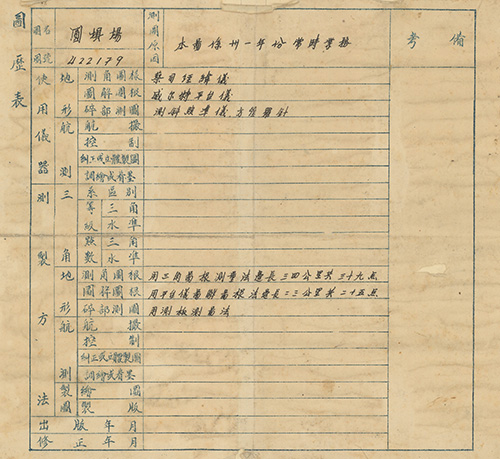 圖歷表
圖名 圓墩場
圖號 422179
測圖原因 本局係卅一年份常時業務
備考
使用儀器
地形 測角圖根 蔡司經緯儀
圖解圖根 威尔特平台儀
碎部測圖 測斜照準儀 方筐羅針
航測 航攝
控制
糾正或立體製圖
調繪或着墨
測製方法
三角 系區別
等級 三角
水準
點數 三角
水準
地形 測角圖根 用三角圖根測量法邊長三四公里共三十九点
圖解圖根 用平台儀圖解圖根法邊長二三公里共二十五点
碎部測圖 用測板測圖法
航測 航攝
控制
糾正或立體製圖
調繪或着墨
製圖 繪圖
製版
出版年月
修正年月